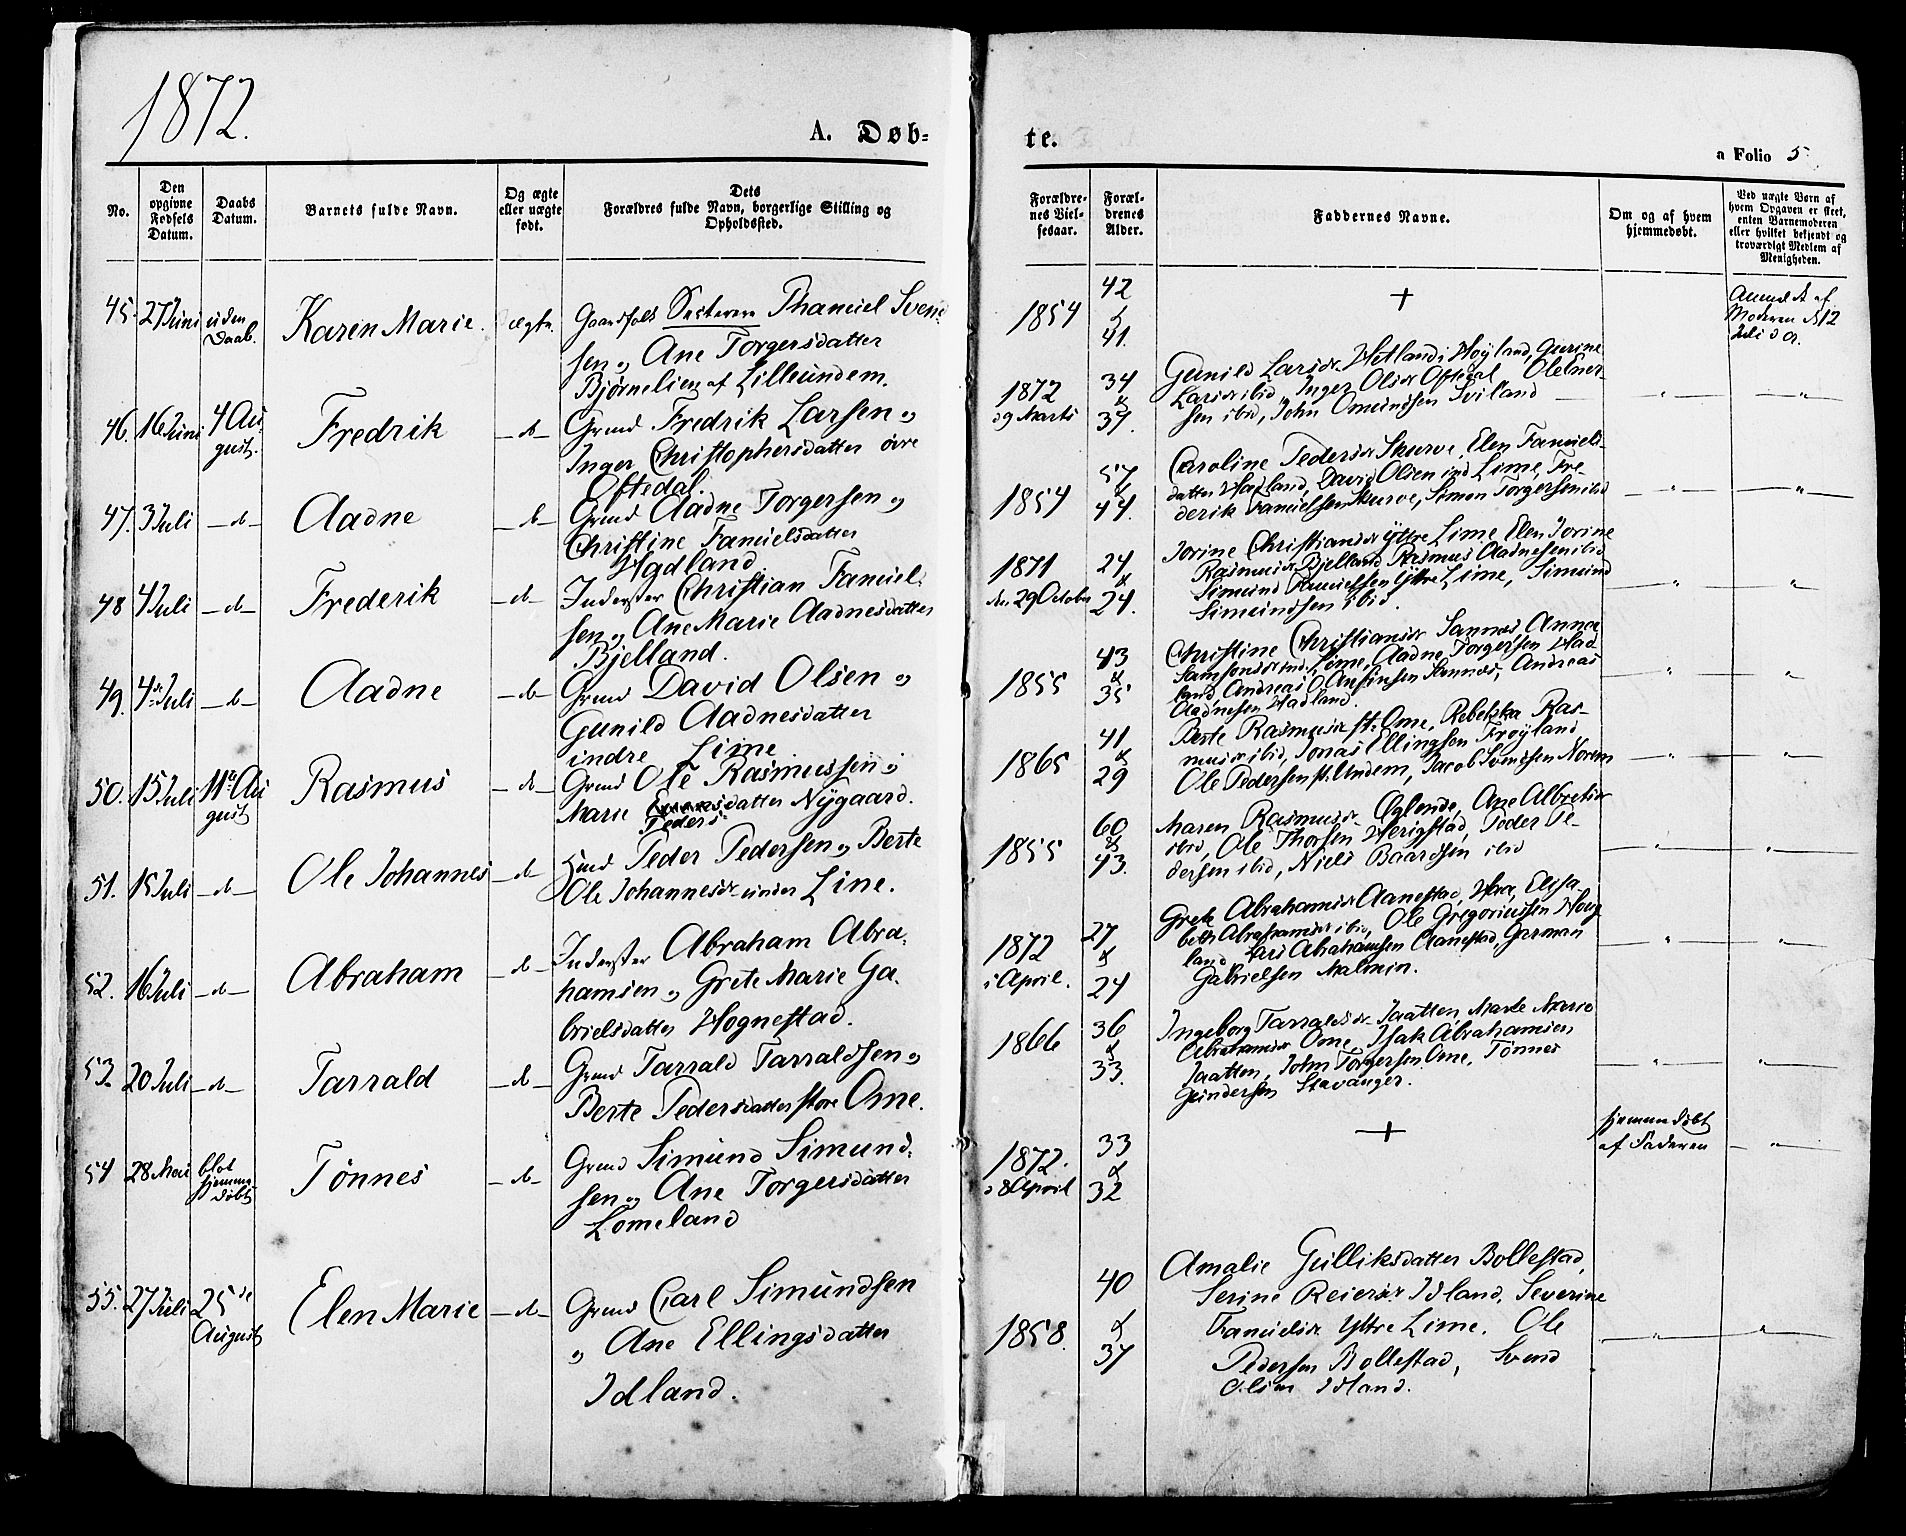 1872.
A. Døb=
te.
a Folio 5
No.
Den
opgivne
Fødsels
Datum.
Daabs
Datum.
Barnets fulde Navn.
Og ægte
eller uægte
født.
Dets
Forældres fulde Navn, borgerlige Stilling og
Opholdssted.
Forældre-
nes Viel-
sesaar.
Foræl-
drenes
Alder.
Faddernes Navne.
Om og af hvem
hjemmedøbt.
Ved uægte Børn af
hvem Opgaven er skeet,
enten Barnemoderen
eller hvilket bekjendt og
troværdigt Medlem af
Menigheden.
45. 27 Juni uden
Daab.
Karen Marie. ægte.
Gaardfolk Svend-
sen og Ane Torgersdatter
Bjørnelien af Lilleundem.
1854
42
&
41.
+
Anmeldt af
Moderen d 12
Juli d a.
46. 16 Juni 4 Au-
gust.
Fredrik — d —
Grmd Fredrik Larsen og
Inger Christophersdatter øvre
Oftedal.
1872
29 Marts
34
&
37.
Gunild Larsdr Hetland i Høyland, Gurine
Larsdr ibid, Inger Olsdr Oftedal Ole Iver-
sen ibid, John Omundsen Sviland — " — — " —
47. 3 Juli — d — Aadne — d —
Grmd Aadne Torgersen og
Christine Samuelsdatter
Hadland
1854
57
&
44.
Caroline Pedersdr Skurve, Elen Samuels-
datter Hadland, David Olsen ind Lime, Fre
derik Samuelsen Skurve, Simon Torgersen ibid — " — "
48 4 Juli — d — Frederik — d —
Inderster Christian Samuel-
sen og Ane Marie Aadnesdatter
Bjelland.
1871
den 29 October
24
&
24.
Jorine Christiansdr Ytre Lime Elen Jorine
Rasmusdr Bjelland Rasmus Aadnesen ibid
Simund Samuelsen Ytre Lime, Simund
Simundsen ibid.
— " — "
49. 4de Juli — d — Aadne — d —
Grmd David Olsen og
Gunild Aadnesdatter
indre Lime
1855
43
&
35
Christine Christiansdr Sannes, Anna
Samsonsdr ind. Lime, Aadne Torgersen Had
land, Andreas O. Sannes, Andreas
Aadnesen Hadland.
— " — "
50. 15 Juli 11te Au
gust
Rasmus — d —
Grmd Ole Rasmussen og
Marie datter Nygaard.
Peders
1865
41
&
29
Berte Rasmusdr st. Ome, Rebekka Ras-
musdr ibid, Jonas Ellingsen Frøyland
Ole Pedersen st. Undem, Jacob Svendsen Norem
— " — "
51. 15 Juli — d — Ole Johannes — d
Peder Pedersen og Berte
Ole Johannesdr Line.
1855
60
&
43.
Maren Rasmusdr Øglende, Ane Albretsdr
ibid, Ole Thorsen Herigstad, Peder Pe-
dersen ibid, Niels Baardsen ibid
— " — "
52. 16 Juli — d — Abraham — d —
Inderster Abraham Abra-
hamsen og Grete Marie Ga-
brielsdatter Hognestad.
1872
i April.
27
&
24
Grete Abrahamsdr Aanestad, Haa, Elisa-
beth Abrahamsdr ibid, Ole Gregoriussen Houg
land Lars Abrahamsen Aanestad, German
Gabrielsen Malmin.
— " — "
53. 20 Juli — d — Tarrald — d —
Grmd Tarrald Tarraldsen og
Berte Pedersdatter store Ome.
1866
36
&
33.
Ingeborg Tarraldsdr Jaatten, Marte Marie
Abrahamsdr Ome, Isak Abrahamsen
Jaatten, John Torgersen Ome, Tønnes
Gundersen Stavanger.
— " — "
54 28 Mai blot
hjemme
døbt
Tønnes — d —
Grmd Simund Simund-
sen og Ane Torgersdatter
Lomeland
1872.
d 8 April
33
&
32
+
hjemmedøbt
af Faderen — " —
55. 27 Juli 25de
August
Elen Marie — d —
Grmd Carl Simundsen
og Ane Ellingsdatter
Idland.
1858.
40
&
37
Amalie Gulliksdatter Bollestad,
Serine Reiersdr Idland, Severine
Samuelsdr Ytre Lime. Ole
Pedersen Bollestad, Svend
Olsen Idland.
— " — "